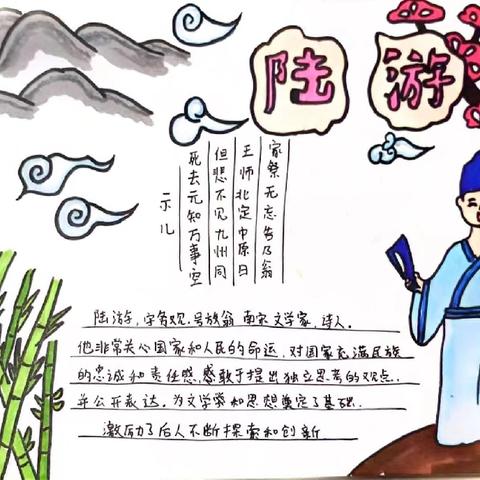 陆游
示儿
死去元知万事空
但悲不见九州同
王师北定中原日
家祭无忘告乃翁
陆游，字务观，号放翁 南宋文学家，诗人。
他非常关心国家和人民的命运，对国家充满民族
的忠诚和责任感，感敢于提出独立思考的观点，
并公开表达，为文学常和思想奠定了基础。
激励了后人不断探索和创新